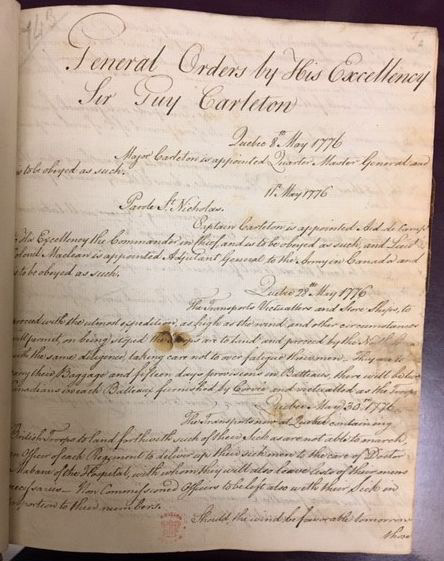 General Orders by His Excellency
Sir Guy Carleton
Quebec 8th May 1776
Major Carleton is appointed Quarter Master General and
is to be obeyed as such.
11th May 1776
Parole St. Nicholas.
Captain Carleton is appointed Aid de Camp
His Excellency the Commander in Chief, and is to be obeyed as such, and Lieut
Colonel Maclean is appointed Adjutant General to the Army in Canada and
to be obeyed as such.
Quebec 28th May 1776
The Transports Victuallers and Store Ships, to
proceed with the utmost expedition, as high as the wind and other circumstances
will permit, on being stop'd the Troops are to land and proceed by the
with the same diligence, taking care not to over fatigue the men. They are to
carry their Baggage and fifteen days provisions in Batteaus, there will be two
Canadians in each Batteau furnished by Corvée and victualled as the Troops
Quebec May 30th 1776
The Transports now at Quebec containing
British Troops to land forthwith such of their Sick as are not able to march,
an Officer of each Regiment to deliver up their sick men to the care of Doctor
Mabane of the Hospital, with whom they will also leave Lists of their mens
necessaries — Non Commissioned Officers to be left also with their Sick in
proportion to their numbers.
Should the wind be favorable tomorrow
those